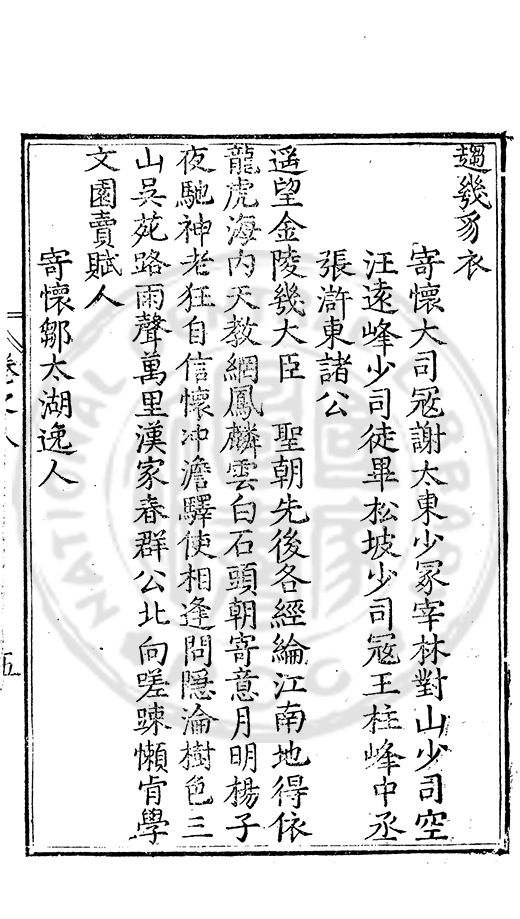 趨幾豸衣
寄懷大司冦謝太東少冢宰林對山少司空
汪遠峰少司徒畢松坡少司冦王柱峰中丞
張滸東諸公
遥望金陵幾大臣　聖朝先後各經綸江南地得依
龍虎海内天教網鳳麟雲白石頭朝寄意月明楊子
夜馳神老狂自信懷冲澹驛使相逢問隠淪樹色三
山吳苑路雨聲萬里漢家春群公北向嗟踈懶肯學
文園賣賦人
寄懷鄒太湖逸人
卷之八
五